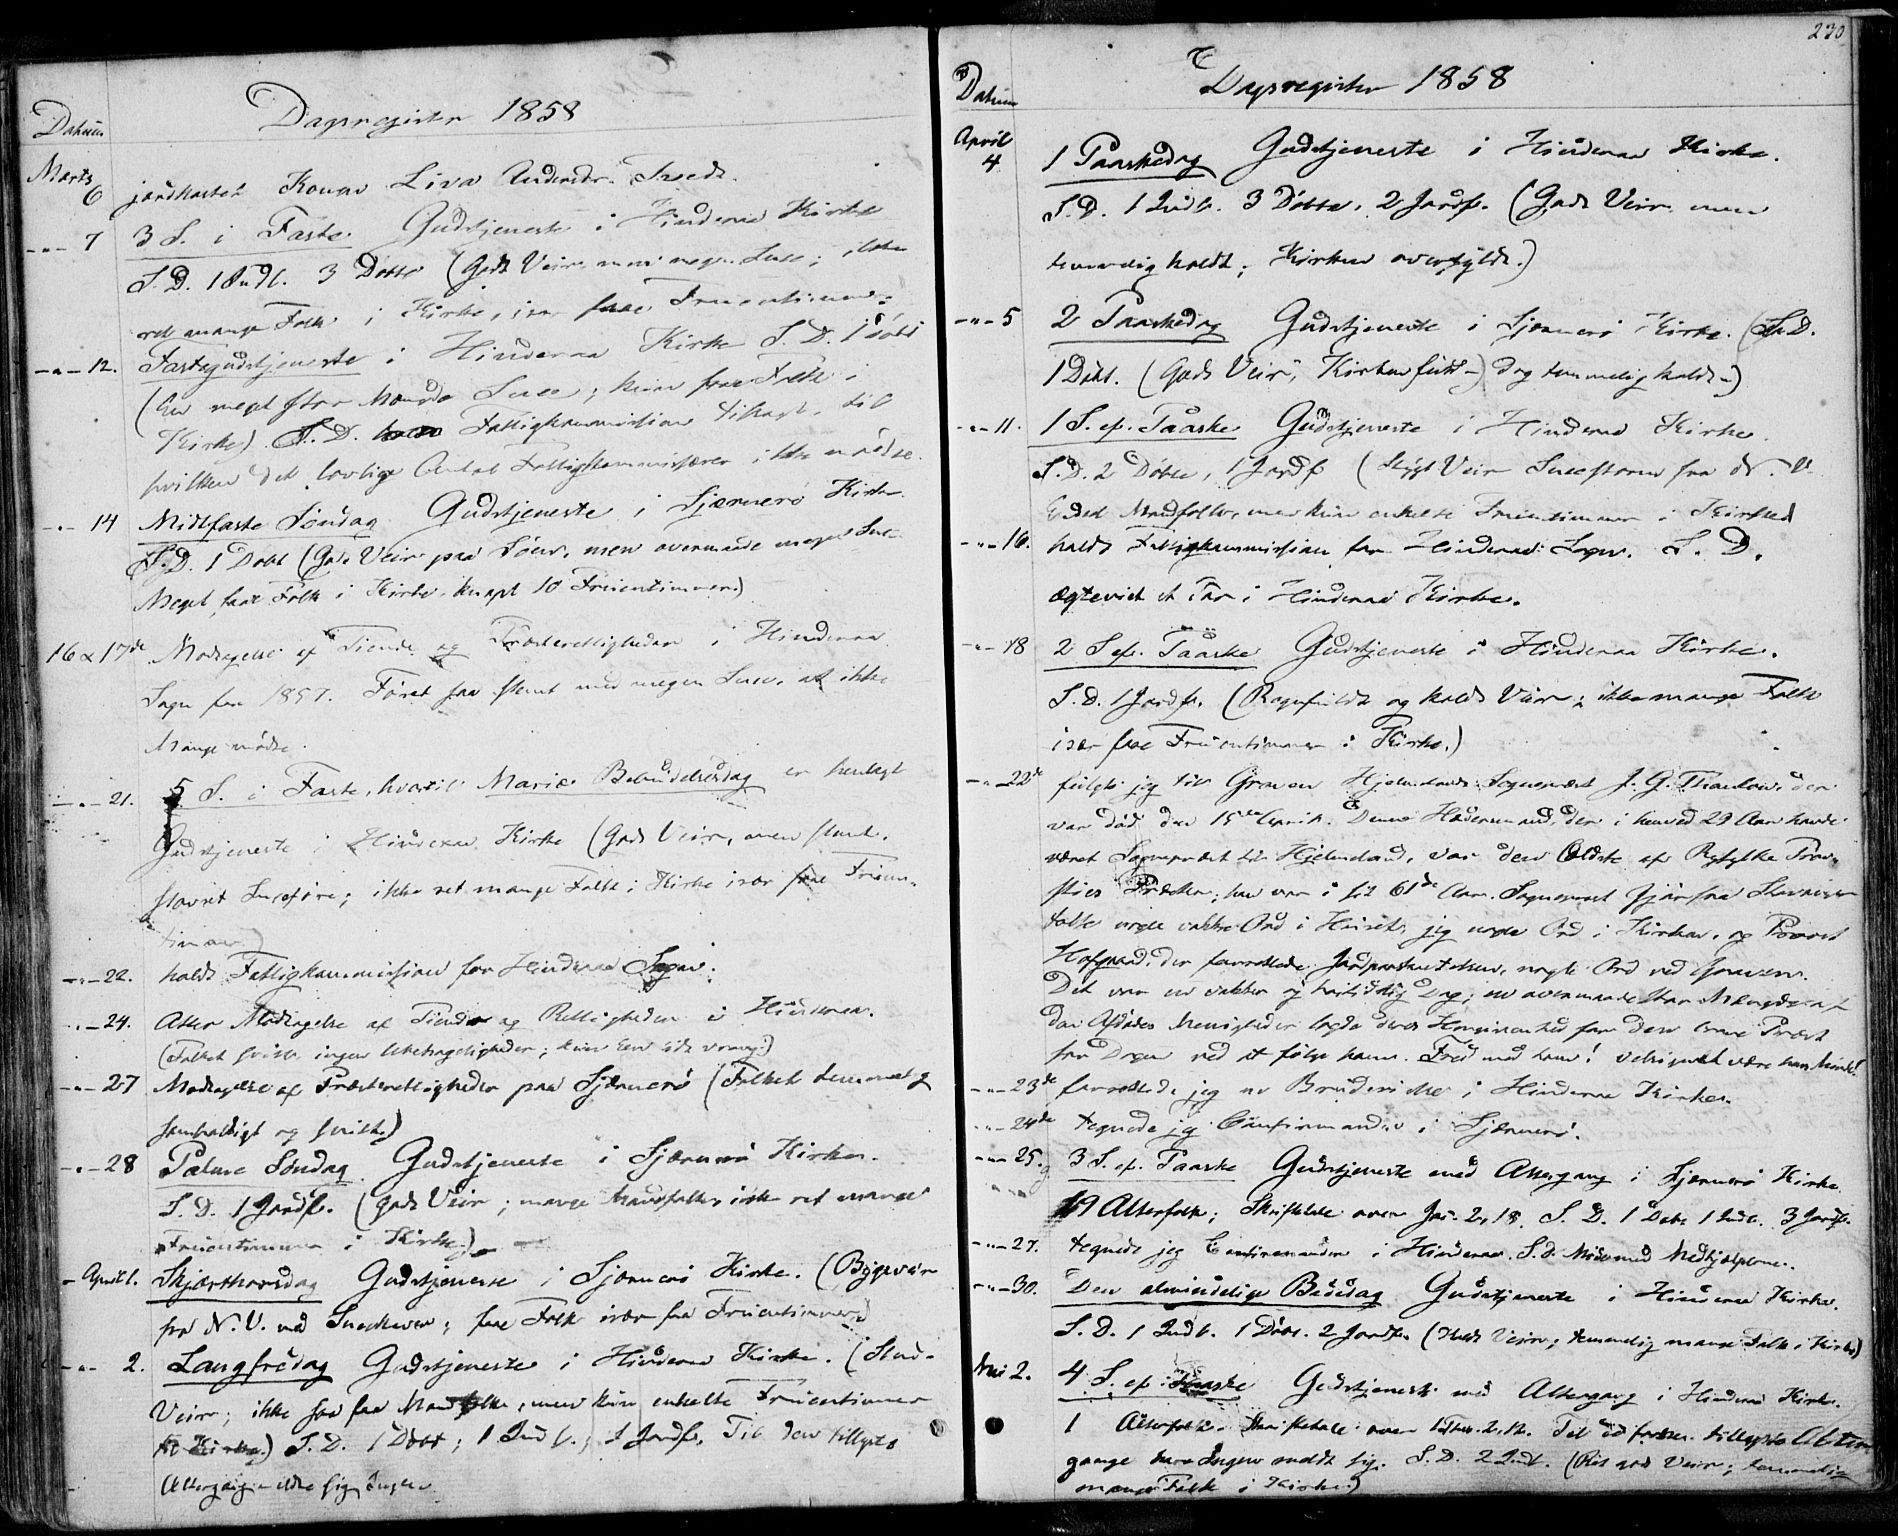 Dagsregister 1858
Datum
Marts
6 jordkastet Konen Liva Andersdr. Tveds.
-"- 7 3 S. i Faste. Gudstjeneste i Hinderaa Kirke
S. D. 1 Indl. 3 Døbte (Godt Veir, men megen Snee; ikke
ret mange Folk i Kirke, især faae Fruentimmer.
-"- 12. Fastegudstjeneste i Hinderaa Kirke S. D. 1 Døbt
(En meget stor Mængde Snee; kun faae Folk i
Kirke). S. D. Fattigkommission tilsagt, til
hvilken det lovlige Antal Fattigkommissærer ikke mødte.
-"- 14 Midtfaste Søndag Gudstjeneste i Sjærnerø Kirke
S. D. 1 Døbt (Godt Veir paa Søen, men overmaade megen Snee
Meget faae Folk i Kirke, knapt 10 Fruentimmer)
16 & 17de Modtagelse af Tiende og Præsterettigheder i Hinderaa
Sogn for 1857. Føret saa slemt med megen Snee, at ikke
Mange mødte.
-"- 21. 5 S. i Faste, hvortil Mariæ Bebudelsesdag er henlagt
Gudstjeneste i Hinderaa Kirke (Godt Veir, men slemt,
Sneeføre; ikke ret mange Folk i Kirke især faae Fruen-
timmer)
-"- 22. holdt Fattigkommission for Hinderaa Sogn.
-"- 24. Atter Modtagelse af Tiende og Rettigheder i Hinderaa.
(Folket ingen Ubehageligheder; kun Een lidt vrang.)
-"- 27 Modtagelse af Præsterettigheder paa Sjærnerø (Folket temmelig
og)
-"- 28 Palme Søndag Gudstjeneste i Sjærnerø Kirke.
S. D. 1 Jordf. (godt Veir; mange Mandfolk, ikke ret mange
Fruentimmer i Kirke)
- April 1. Skjærthorsdag Gudstjeneste i Sjærnerø Kirke. (Bygeveir
fra N. V. med Sneekaver; faae Folk især faa Fruentimmer.)
-"- 2. Langfredag Gudstjeneste i Hinderaa Kirke. (
Veir; ikke saa faa Mandfolk, men kun enkelte Fruentimmer
i Kirke.) S. D. 1 Døbt; 1 Indl.; 1 Jordf. Til den tillyste
Altergang meldte sig Ingen
230
Dagsregister 1858
Datum
April
4 1 Paaskedag Gudstjeneste i Hinderaa Kirke.
S. D. 1 Indl. 3 Døbte, 2 Jordf. (Godt Veir, men
temmelig koldt; Kirken overfyldt.)
-"- 5 2 Paaskedag Gudstjeneste i Sjærnerø Kirke. (S. D.
1 Døbt. (Godt Veir, Kirken fuld -) dog temmelig koldt -)
-"- 11. 1 S. ef. Paaske Gudstjeneste i Hinderaa Kirke.
S. D. 2 Døbte, 1 Jordf. (Stygt Veir Sneestorm fra N. V.
Endeel Mandfolk, men kun enkelte Fruentimmer i Kirke)
-"- 16. holdt Fattigkommission for Hinderaa Sogn. S. D.
ægteviet et Par i Hinderaa Kirke.
-"- 18 2 S ef. Paaske Gudstjeneste i Hinderaa Kirke.
S. D. 1 Jordf. (Regnfuldt og koldt Veir; ikke mange Folk
især faae Fruentimmer i Kirke.)
-"- 22de fulgte jeg til Graven Hjelmelands Sognepræst J. G. Thaulow, der
var død den 15de April. Denne Hædersmand, der i henved 29 Aar havde
været Sognepræst til Hjelmeland, var den Ældste af Ryfylke Prov-
sties Præster; han var i sit 61de Aar. Sognepræst fra Stavanger
talte nogle vakkre Ord i Huset, jeg nogle Ord i Kirken, og Provst
Hofgaard, der forrettede Jordpaakastelsen, nogle Ord ved Graven.
Det var en vakker og høitidelig Dag; en overmaade stor Mængde af
den Afdødes Menigheder lagde deres Hengivenhed for den brave Præst
for Dagen ved at følge ham. Fred med ham! Velsignet være hans Minde!
-"- 23de forrettede jeg en Brudevielse i Hinderaa Kirke.
-"- 24de tegnede jeg Confirmander i Sjærnerø.
-"- 25. 3 S. ef. Paaske Gudstjeneste med Altergang i Sjærnerø Kirke
19 Alterfolk; Skriftetale over Jac. 2, 18. S. D. 1 Døbt 1 Indl. 3 Jordf.
-"- 27. tegnede jeg Confirmander i Hinderaa. S. D. Møde med Medhjælperne.
-"- 30. Den almindelige Bededag Gudstjeneste i Hinderaa Kirke.
S. D. 1 Indl. 1 Døbt. 2 Jordf. (Koldt Veir; temmelig mange Folk i Kirke)
Mai 2. 4 S. ef. Paaske Gudstjeneste med Altergang i Hinderaa Kirke.
1 Alterfolk. Skriftetale over 1 Thes. 2, 12. Til de forhen tillyste Alter-
gange have Ingen meldt sig. S. D. 2 Indl. (Ret godt Veir; temmelig
mange Folk i Kirke.)